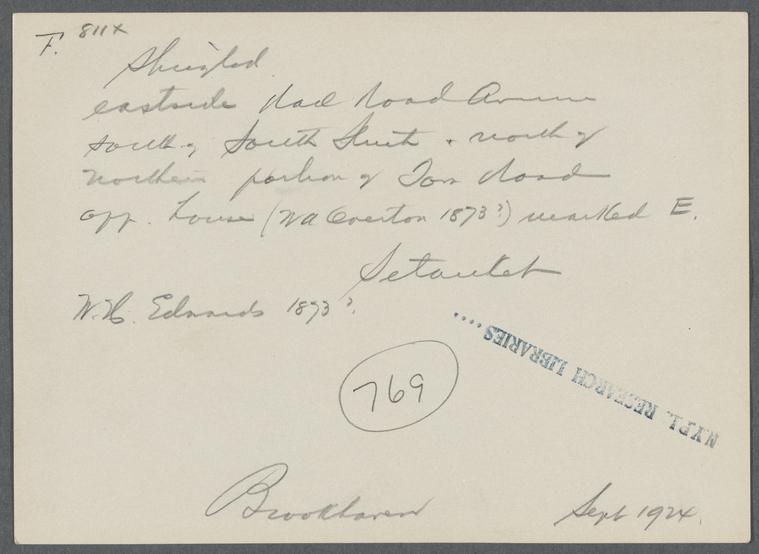 F. 811x
Shingled
eastside Rail Road Avenue
south of South Street + north of
northern portion of Road
opp. house (W A Overton 1873?) marked E.
Setauket
W. H. Edwards 1873?
769
N.Y.P.L. RESEARCH LIBRARIES....
Brookhaven
Sept 1924.